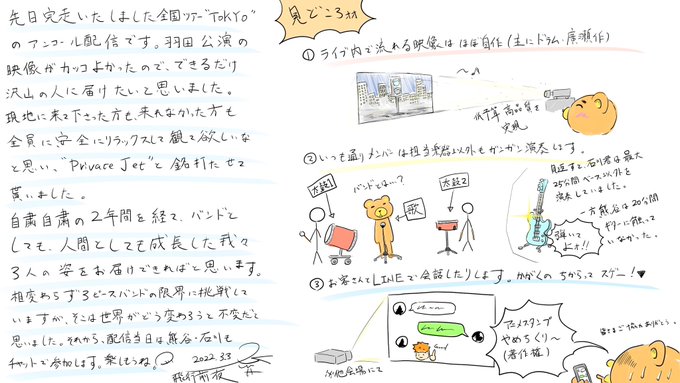 先日完走いたしました全国ツアー"TOKYO"
のアンコール配信です。羽田公演の
映像がカッコよかったので、できるだけ
沢山の人に届けたいと思いました。
現地に来て下さった方も、来れなかった方も
全員に安全にリラックスして観て欲しいな
と思い、"Private Jet"と銘打たせて
貰いました。
自粛自粛の2年間を経て、バンドと
しても、人間としても成長した我々
3人の姿をお届けできればと思います。
相変わらず3ピースバンドの限界に挑戦して
いますが、そこは世界がどう変わろうと不変だと
思いました。それから、配信当日は熊谷・石川も
チャットで参加します。楽しもうね。
2022.3.3
飛行前夜
見どころ
① ライブ内で流れる映像はほぼ自作(主にドラム・廣瀬作)
〜♪
低予算高品質を
実現
② いつも通りメンバーは担当楽器以外もガンガン演奏します。
太鼓1
バンドとは…?
歌
太鼓2
見返すと、石川君は最大
25分間ベース以外を
演奏していました。
一方熊谷は20分間
ギターに触って
いなかった。
弾いて
よォ!!
③ お客さんとLINEで会話したりします。かがくのちからってスゲー!♥
Good
アニメスタンプ
やめちくり〜
(著作権)
皆さまご協力ありがとう。